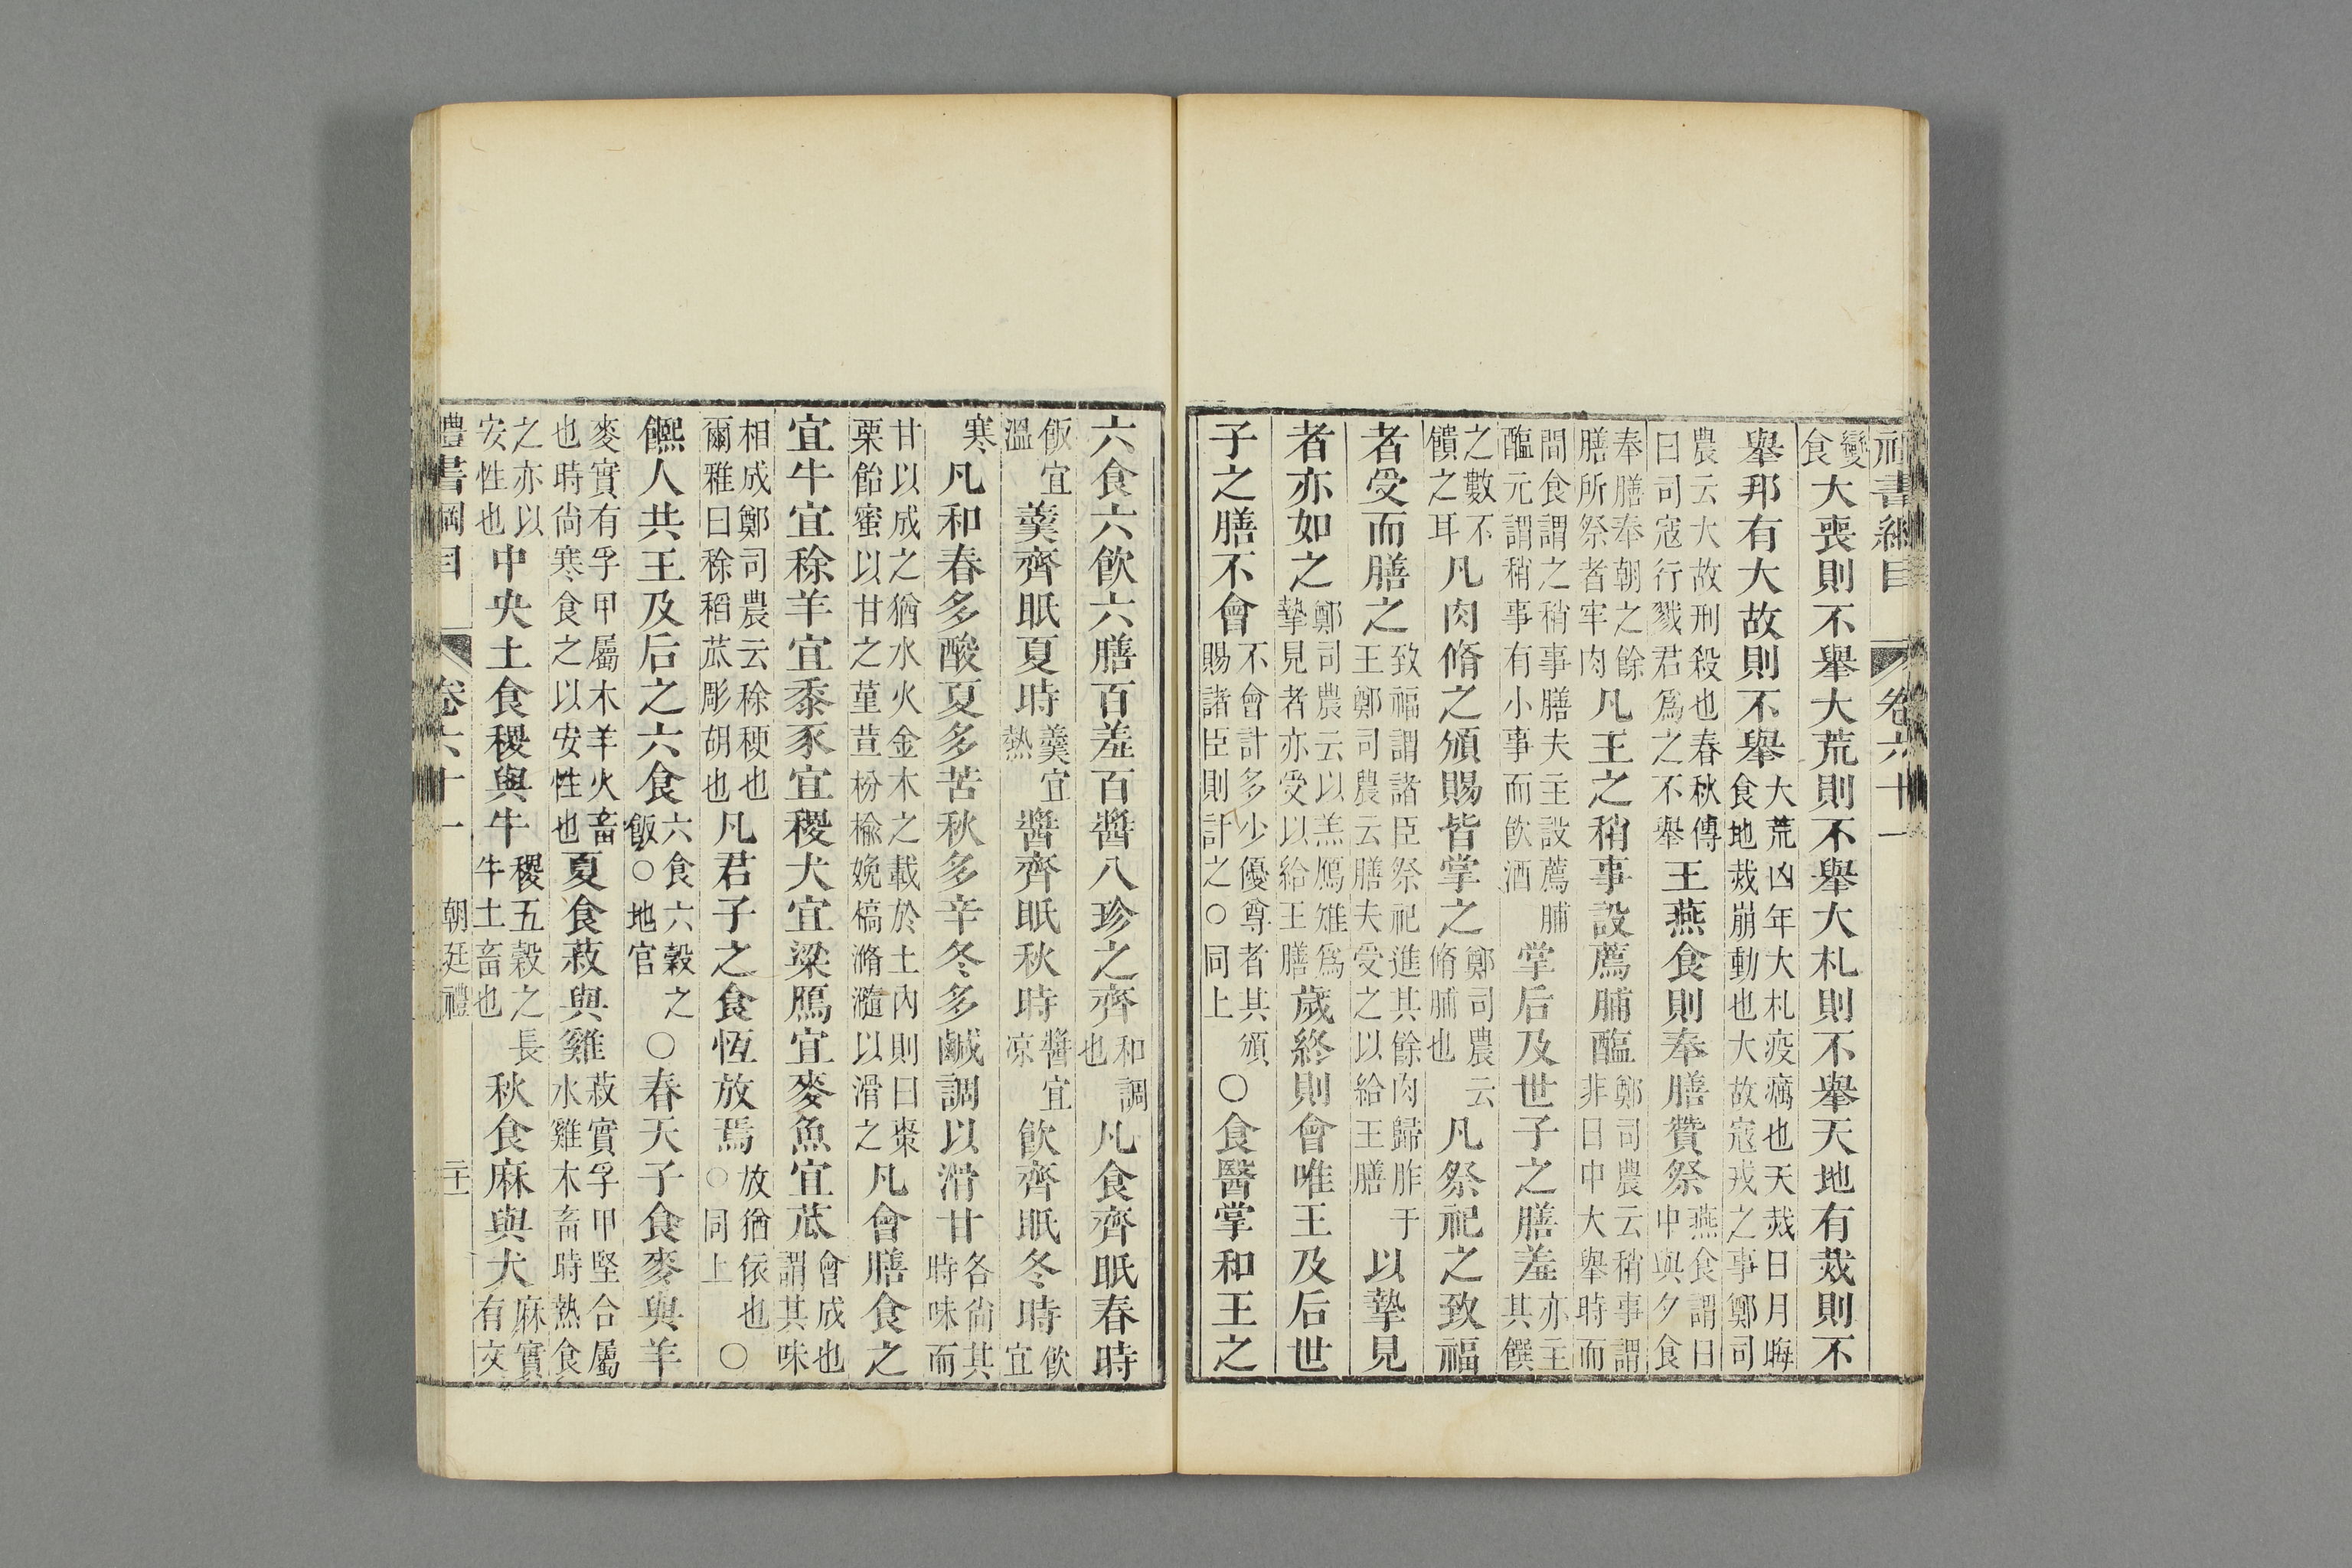 禮書綱目 卷六十一
變食大喪則不舉大荒則不舉大札則不舉天地有烖則不
舉邦有大故則不舉大荒凶年大札疫癘也天烖日月晦食地烖崩動也大故寇戎之事鄭司
農云大故刑殺也春秋傳曰司寇行戮君爲之不舉王燕食則奉膳贊祭燕食謂日中與夕食
奉膳奉朝之餘膳所祭者牢肉凡王之稍事設薦脯醢鄭司農云稍事謂非日中大舉時而
間食謂之稍事膳夫主設薦脯醢元謂稍事有小事而飮酒掌后及世子之膳羞亦主其饌
之數不饋之耳凡肉脩之頒賜皆掌之鄭司農云脩脯也凡祭祀之致福
者受而膳之致福謂諸臣祭祀進其餘肉歸胙于王鄭司農云膳夫受之以給王膳以摯見
者亦如之鄭司農云以羔鴈雉爲摯見者亦受以給王膳歲終則會唯王及后世
子之膳不會不會計多少優尊者其頒賜諸臣則計之○同上○食醫掌和王之
六食六飮六膳百羞百醬八珍之齊和調也凡食齊眡春時
飯宜溫羹齊眡夏時羹宜熱醬齊眡秋時醬宜凉飮齊眡冬時飮宜
寒凡和春多酸夏多苦秋多辛冬多鹹調以滑甘各尙其時味而
甘以成之猶水火金木之載於土內則曰棗栗飴蜜以甘之堇荁枌榆娩槁滫瀡以滑之凡會膳食之
宜牛宜稌羊宜黍豕宜稷犬宜粱鴈宜麥魚宜苽會成也謂其味
相成鄭司農云稌稉也爾雅曰稌稻苽彫胡也凡君子之食恆放焉放猶依也○同上○
饎人共王及后之六食六食六穀之飯○地官○春天子食麥與羊
麥實有孚甲屬木羊火畜也時尙寒食之以安性也夏食菽與雞菽實孚甲堅合屬水雞木畜時熱食
之亦以安性也中央土食稷與牛稷五穀之長牛土畜也秋食麻與犬麻實有文
禮書綱目 卷六十一 朝廷禮 二十一